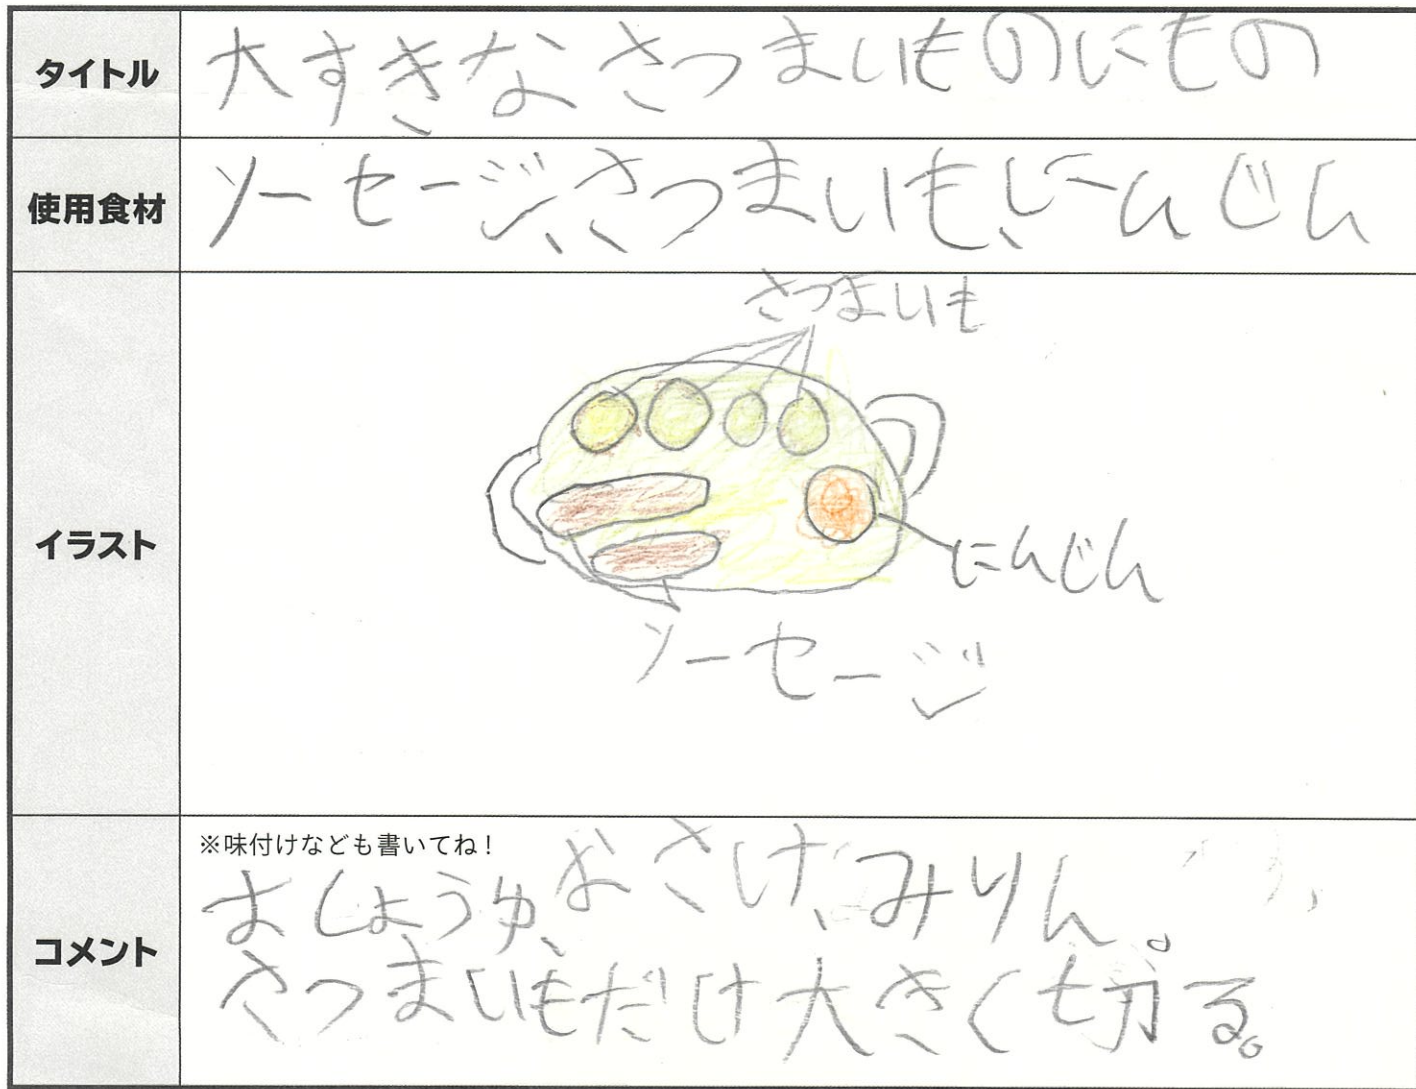 タイトル
大すきなさつまいものにもの
使用食材
ソーセージ、さつまいも、にんじん
イラスト
さつまいも
にんじん
ソーセージ
コメント
※味付けなども書いてね！
おしょうゆ、おさけ、みりん。
さつまいもだけ大きく切る。